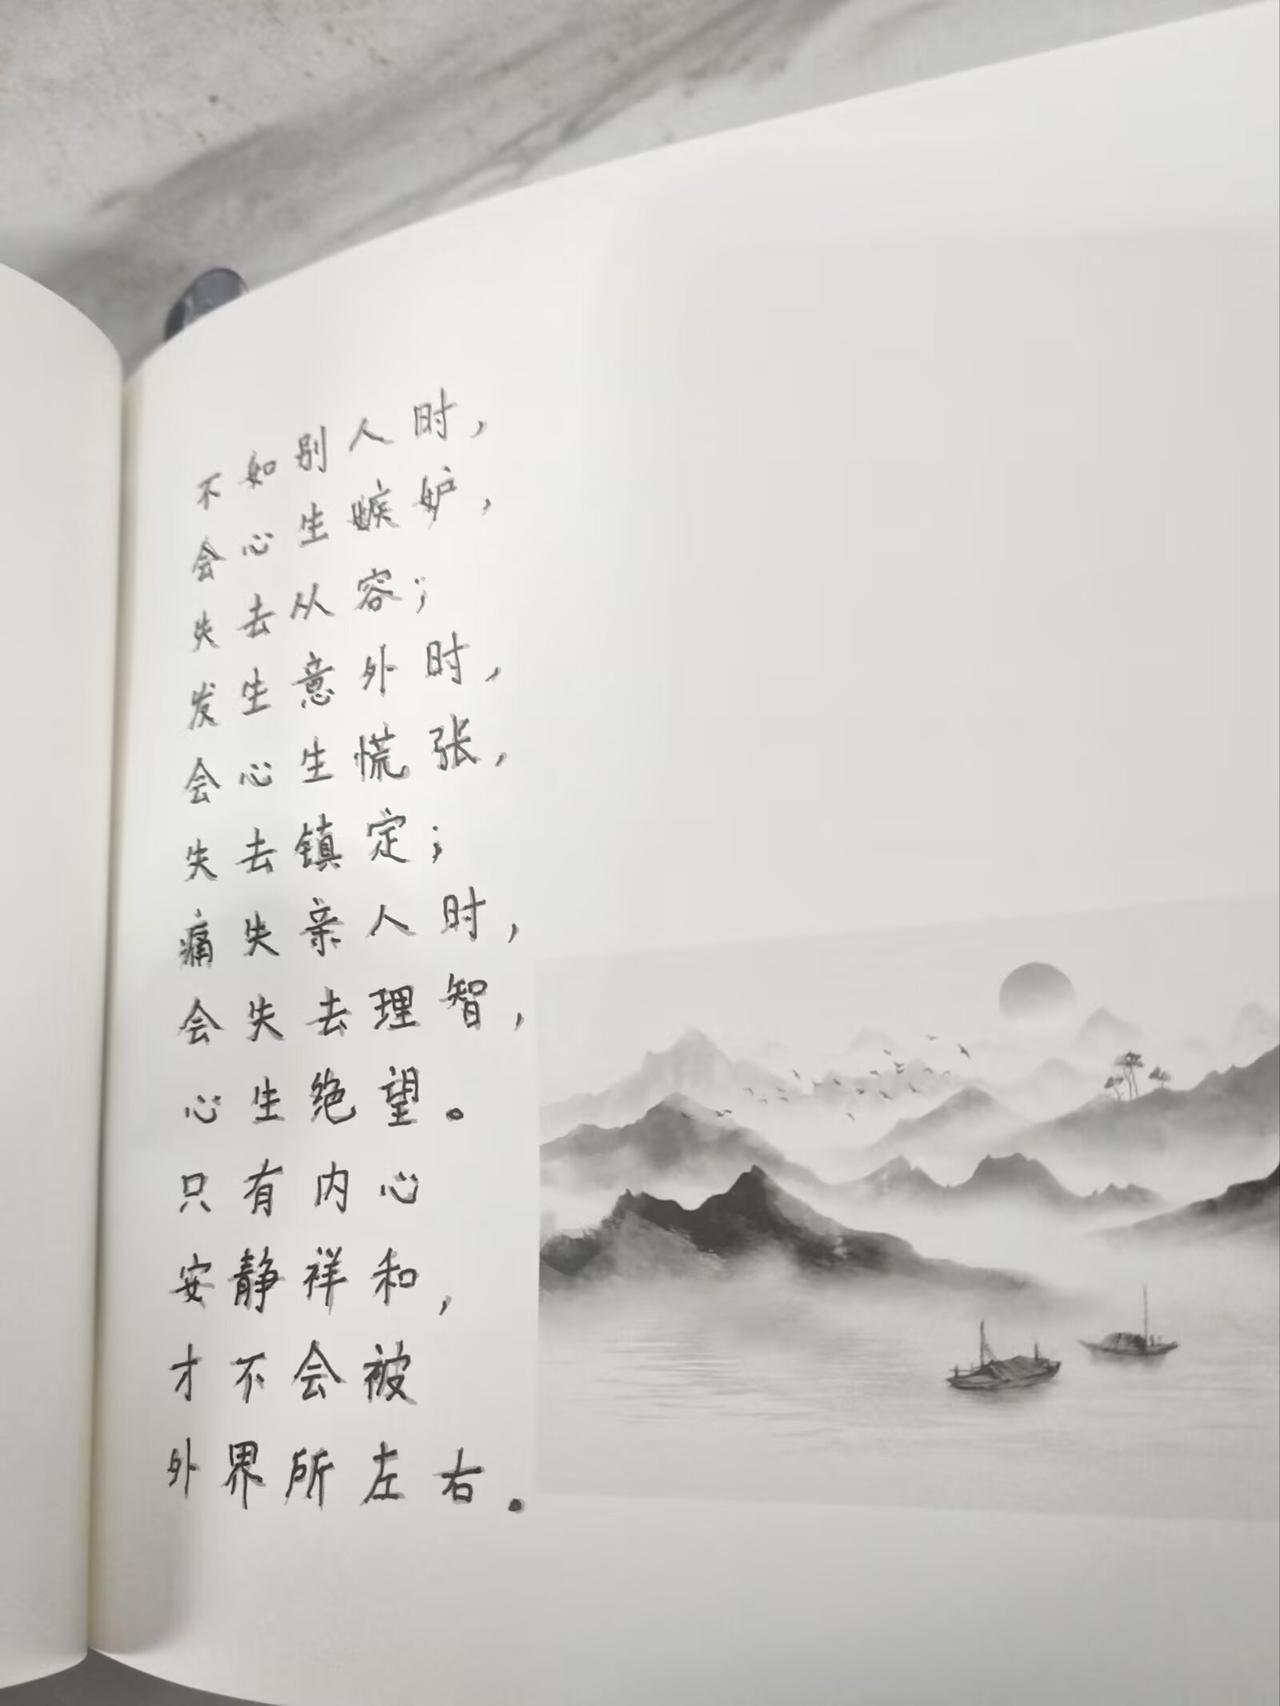 不如别人时，
会心生嫉妒，
失去从容；
发生意外时，
会心生慌张，
失去镇定；
痛失亲人时，
会失去理智，
心生绝望。
只有内心
安静祥和，
才不会被
外界所左右。